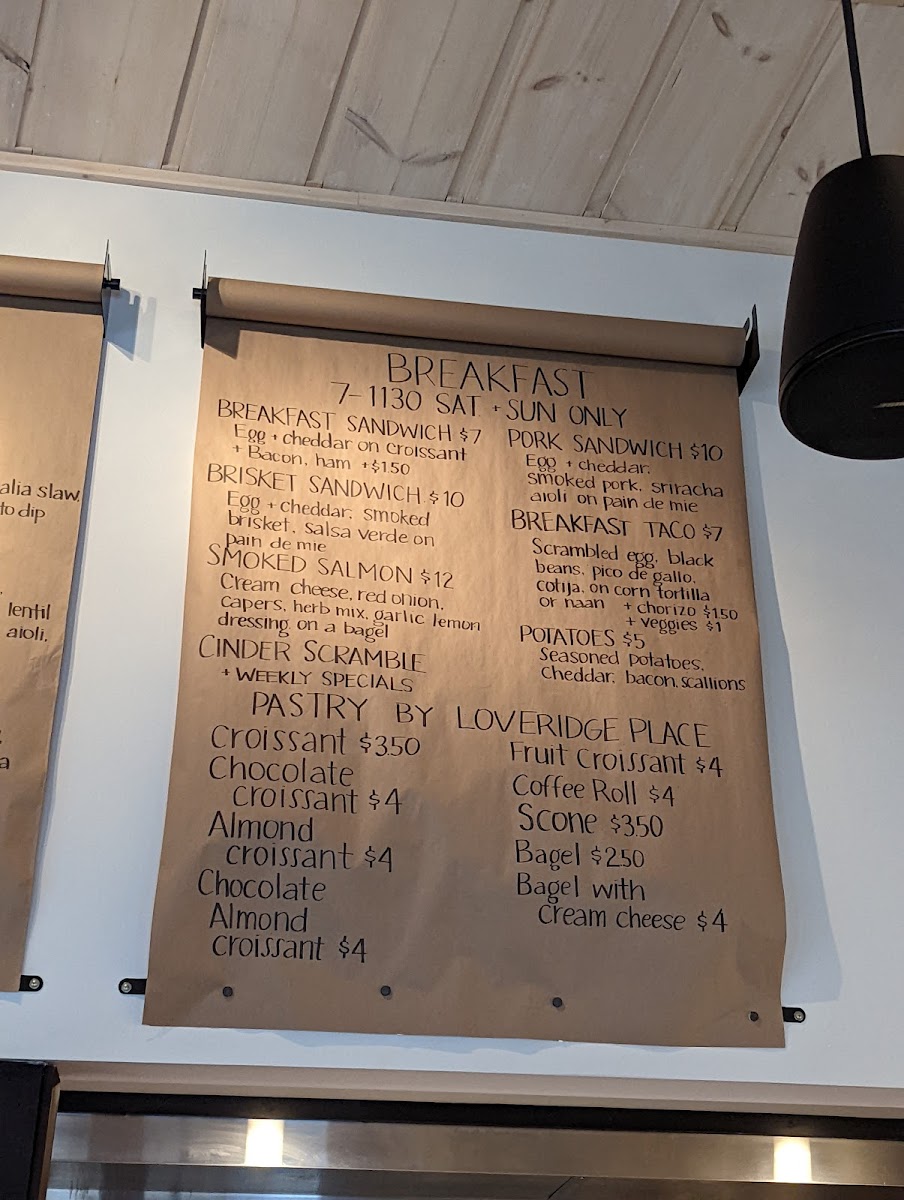 alia slaw,
to dip
lentil
aioli,
a
BREAKFAST
7-1130 SAT + SUN ONLY
BREAKFAST SANDWICH $7
Egg + cheddar on croissant
+ Bacon, ham +$1.50
BRISKET SANDWICH $10
Egg + cheddar, smoked
brisket, salsa verde on
pain de mie
SMOKED SALMON $12
Cream cheese, red onion,
capers, herb mix, garlic lemon
dressing on a bagel
CINDER SCRAMBLE
+ WEEKLY SPECIALS
PORK SANDWICH $10
Egg + cheddar,
smoked pork, sriracha
aioli on pain de mie
BREAKFAST TACO $7
Scrambled egg, black
beans, pico de gallo,
cotija, on corn tortilla
or naan + chorizo $1.50
+ veggies $1
POTATOES $5
Seasoned potatoes,
Cheddar, bacon, scallions
PASTRY BY LOVERIDGE PLACE
Croissant $3.50
Chocolate
croissant $4
Almond
croissant $4
Chocolate
Almond
croissant $4
Fruit Croissant $4
Coffee Roll $4
Scone $3.50
Bagel $2.50
Bagel with
Cream cheese $4